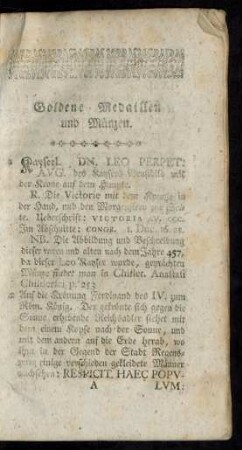 Goldene Medaillen
und Münzen.
KayserL. DN. LEO PERPET:
AVG. des Kaysers Brustbild mit
der Krone auf dem Haupte.
R. Die Victorie mit dem Kreutze in
der Hand, und den Morgenstern zur
Ueberschrift: VICTORIA AV. CCC.
Im Abschnitte: CONOB. 1. Duc. 16. gr.
NB. Die Abbildung und Beschreibung
dieser raren und alten nach dem Jahre 457,
da dieser Leo Kayser worde, geprägten
Münze siehet man in Chiflet. Anastasi
Childerici p. 253
Auf die Krönung Ferdinand des IV. zum
Röm. König. Der gekrönte sich gegen die
Sonne erhebende Reichsadler siehet mit
dem einem Kopfe nach der Sonne, und
mit dem andern auf die Erde herab, wo
ihm in der Gegend der Stadt Regens-
purg einige verschieden gekleidete Männer
nachsehen: RESPICIT HAEC POPV-
A LVM: